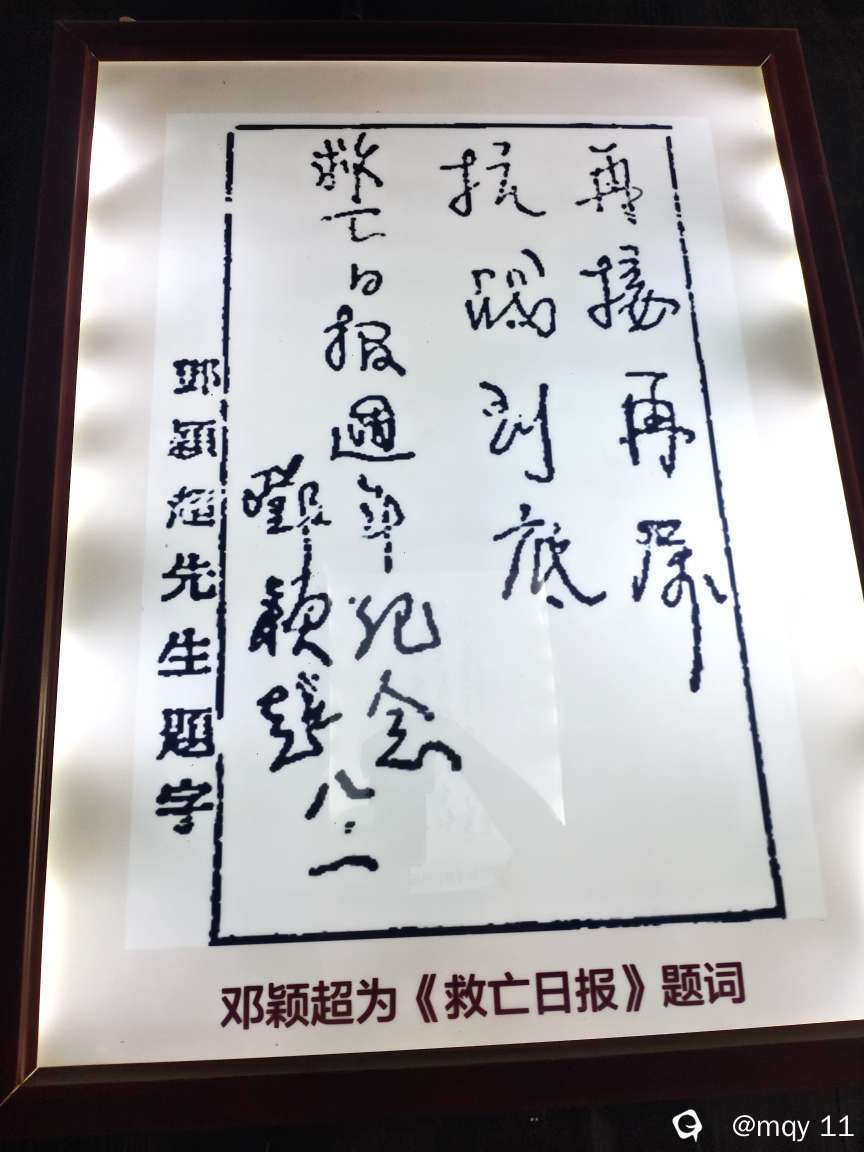 再接再厲
抗到底
救亡日报週年纪念
鄧颖超 八.一
邓颖超先生题字
邓颖超为《救亡日报》题词
@mqy 11